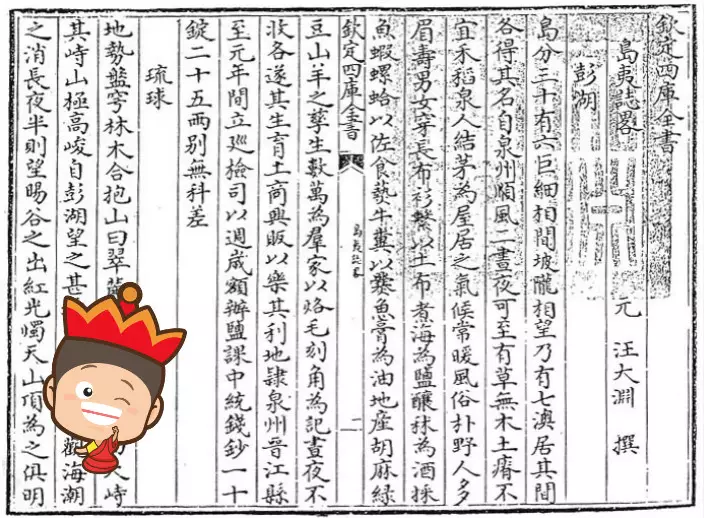 欽定四庫全書
島夷誌畧 元 汪大淵 撰
彭湖
島分三十有六巨細相間坡隴相望乃有七澳居其間
各得其名自泉州順風二晝夜可至有草無木土瘠不
宜禾稻泉人結茅為屋居之氣候常暖風俗朴野人多
眉壽男女穿長布衫繫以土布煮海為鹽釀秫為酒採
魚蝦螺蛤以佐食爇牛糞以爨魚膏為油地產胡麻緑
欽定四庫全書 島夷誌畧 二
豆山羊之孳生數萬為羣家以烙毛刻角為記晝夜不
收各遂其生育土商興販以樂其利地隸泉州晉江縣
至元年間立廵檢司以週歲額辦鹽課中統錢鈔一十
錠二十五兩別無科差
琉球
地勢盤穹林木合抱山曰翠 大崎
其峙山極高峻自彭湖望之甚 觀海潮
之消長夜半則望暘谷之出紅光燭天山頂為之俱明